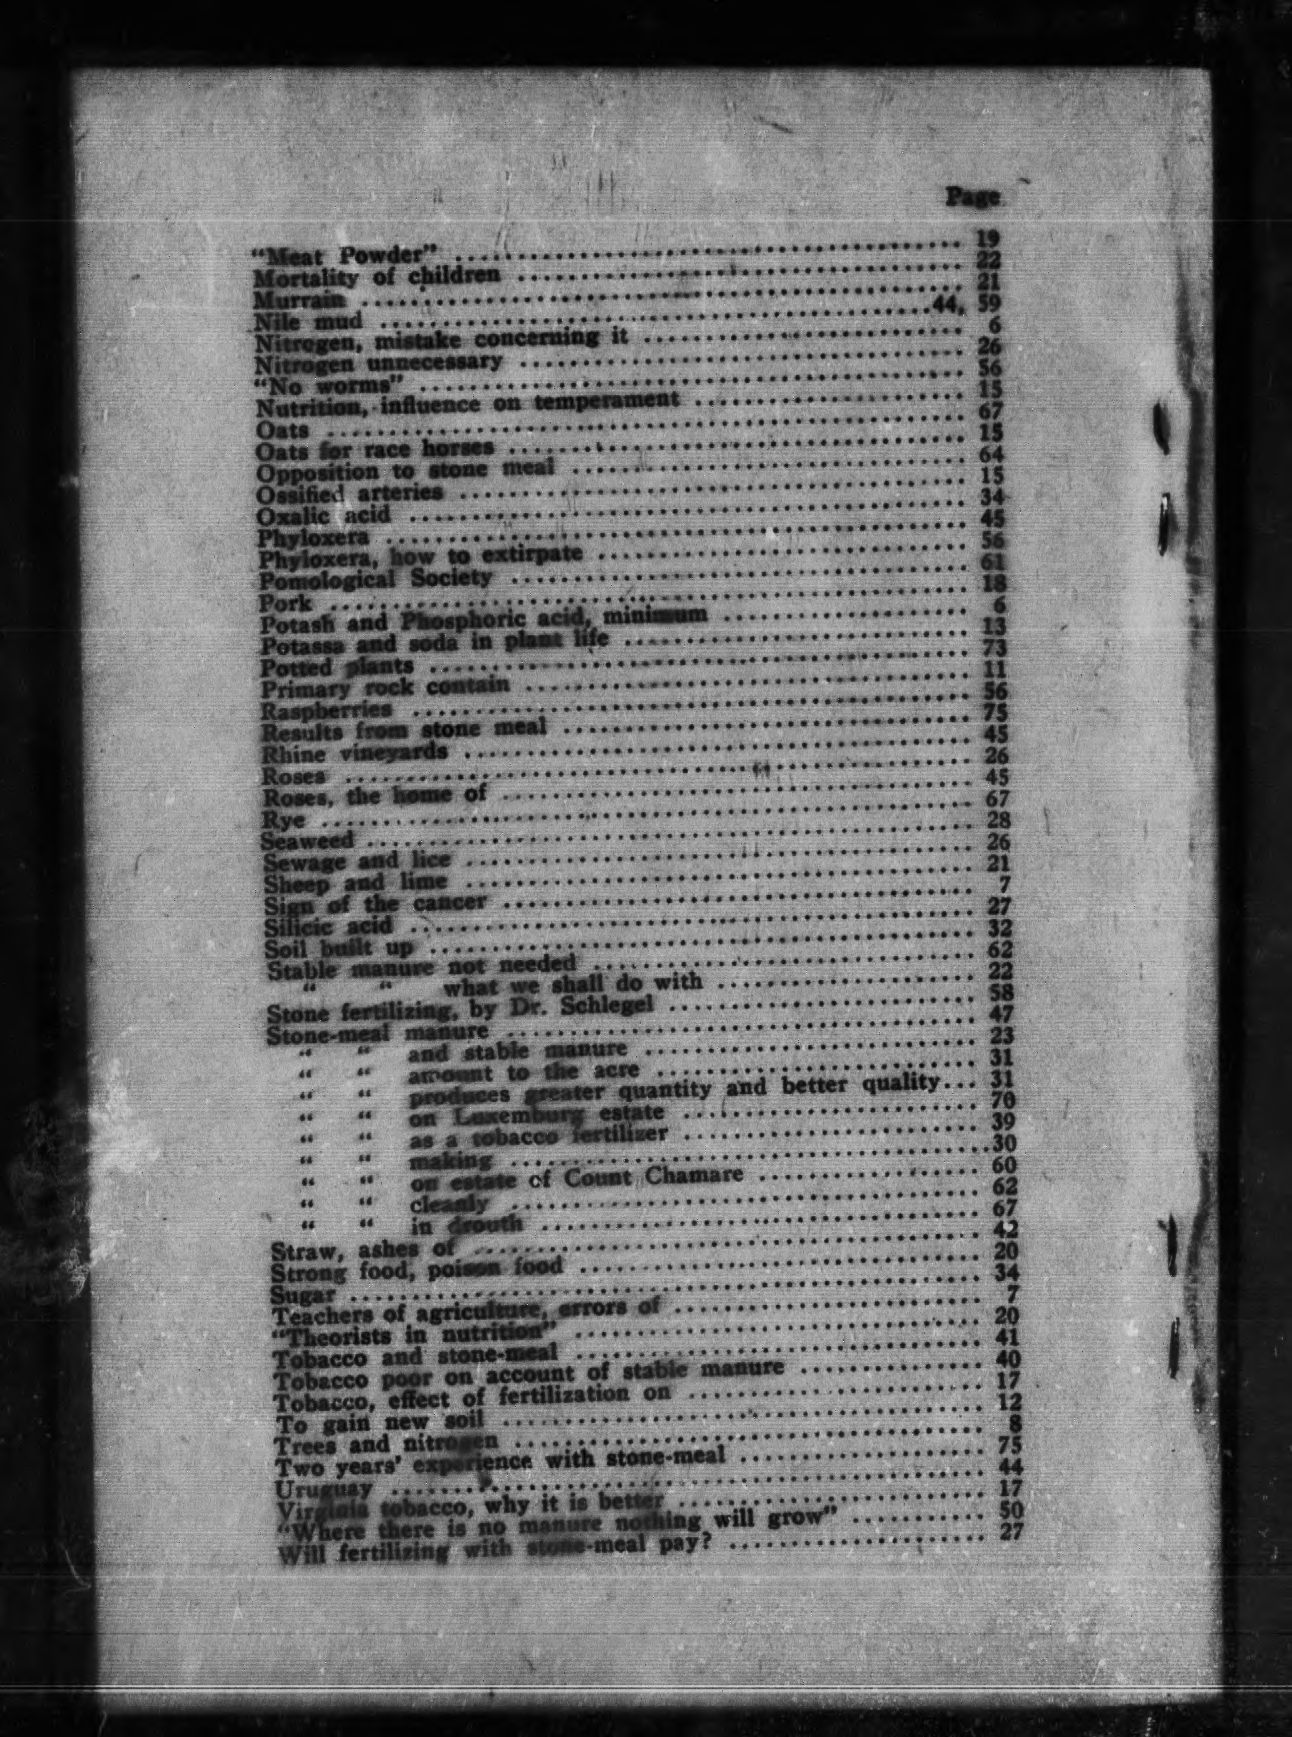 Page
"Meat Powder" ........ 19
Mortality of children ........ 22
Murrain ........ 21
Nile mud ........ 44, 59
Nitrogen, mistake concerning it ........ 6
Nitrogen unnecessary ........ 26
"No worms" ........ 56
Nutrition, influence on temperament ........ 15
Oats ........ 67
Oats for race horses ........ 15
Opposition to stone meal ........ 64
Ossified arteries ........ 15
Oxalic acid ........ 34
Phyloxera ........ 45
Phyloxera, how to extirpate ........ 56
Pomological Society ........ 61
Pork ........ 18
Potash and Phosphoric acid, minimum ........ 6
Potassa and soda in plant life ........ 13
Potted plants ........ 73
Primary rock contain ........ 11
Raspberries ........ 56
Results from stone meal ........ 75
Rhine vineyards ........ 45
Roses ........ 26
Roses, the home of ........ 45
Rye ........ 67
Seaweed ........ 28
Sewage and lice ........ 26
Sheep and lime ........ 21
Sign of the cancer ........ 7
Silicic acid ........ 27
Soil built up ........ 32
Stable manure not needed ........ 62
" " what we shall do with ........ 22
Stone fertilizing, by Dr. Schlegel ........ 58
Stone-meal manure ........ 47
" " and stable manure ........ 23
" " amount to the acre ........ 31
" " produces greater quantity and better quality... 31
" " on Luxemburg estate ........ 70
" " as a tobacco fertilizer ........ 39
" " making ........ 30
" " on estate of Count Chamare ........ 60
" " cleanly ........ 62
" " in drouth ........ 67
Straw, ashes of ........ 42
Strong food, poison food ........ 20
Sugar ........ 34
Teachers of agriculture, errors of ........ 7
"Theorists in nutrition" ........ 20
Tobacco and stone-meal ........ 41
Tobacco poor on account of stable manure ........ 40
Tobacco, effect of fertilization on ........ 17
To gain new soil ........ 12
Trees and nitrogen ........ 8
Two years' experience with stone-meal ........ 75
Uruguay ........ 44
Virginia tobacco, why it is better ........ 17
"Where there is no manure nothing will grow" ........ 50
Will fertilizing with stone-meal pay? ........ 27